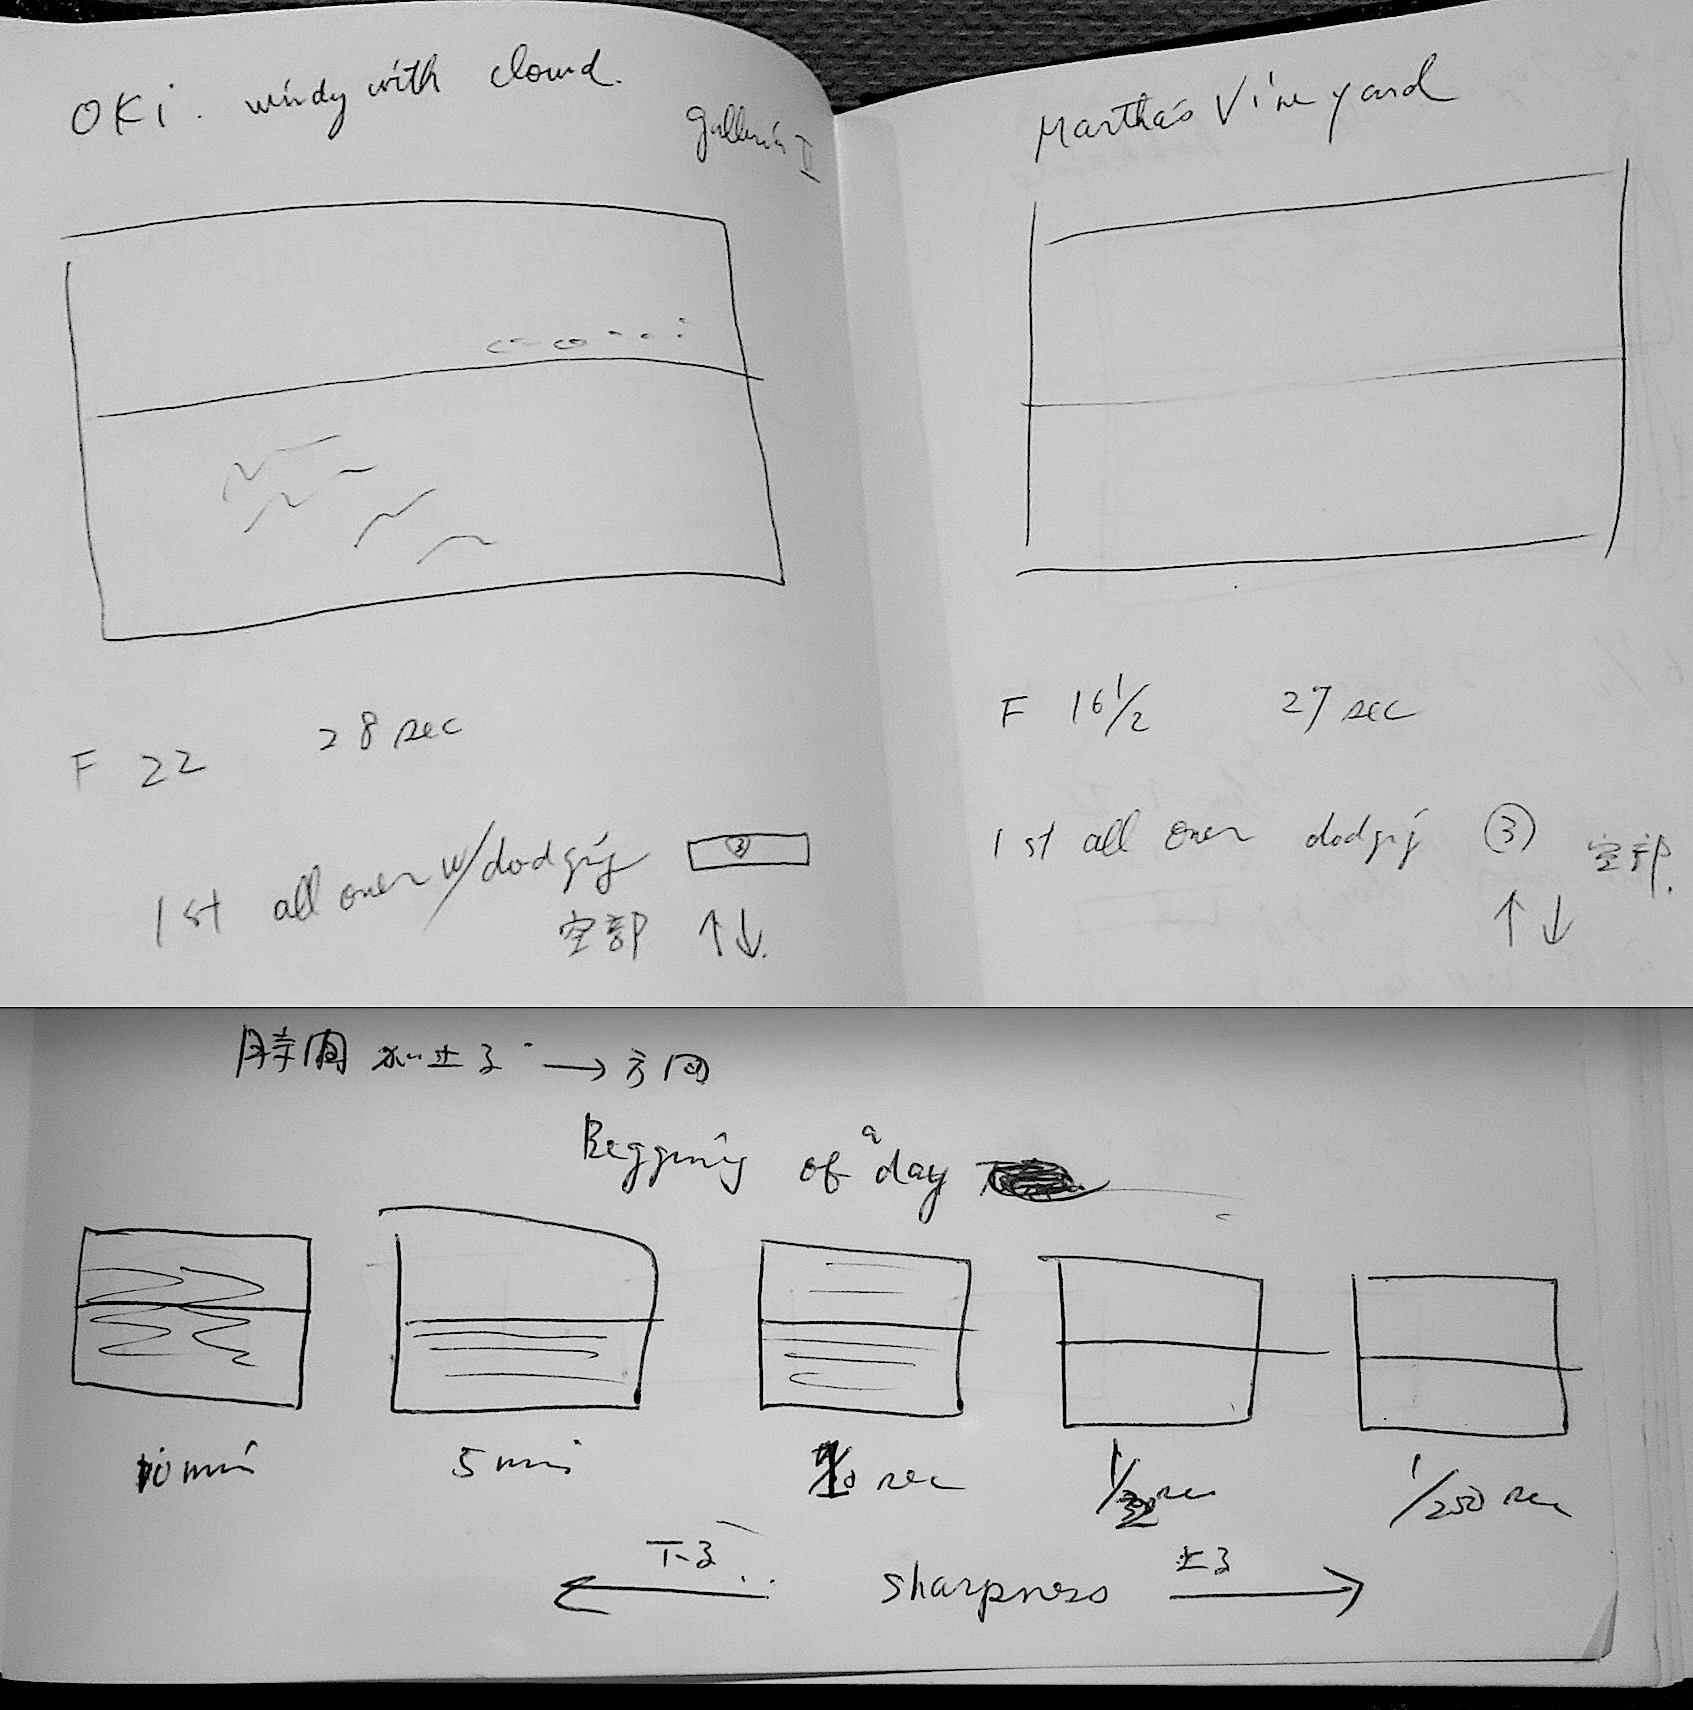 OKi. windy with clowd.
galleria II
F 22 28 sec
1st all over w/dodgig ③
空部 ↑↓
Martha's Vineyard
F 16 1/2 27 sec
1st all over dodgig ③ 空部
↑↓
時間 が 止る → 方向
Beggining of a day
10 min
5 min
sec
sec
1/250 sec
下る ← sharpness 上る →